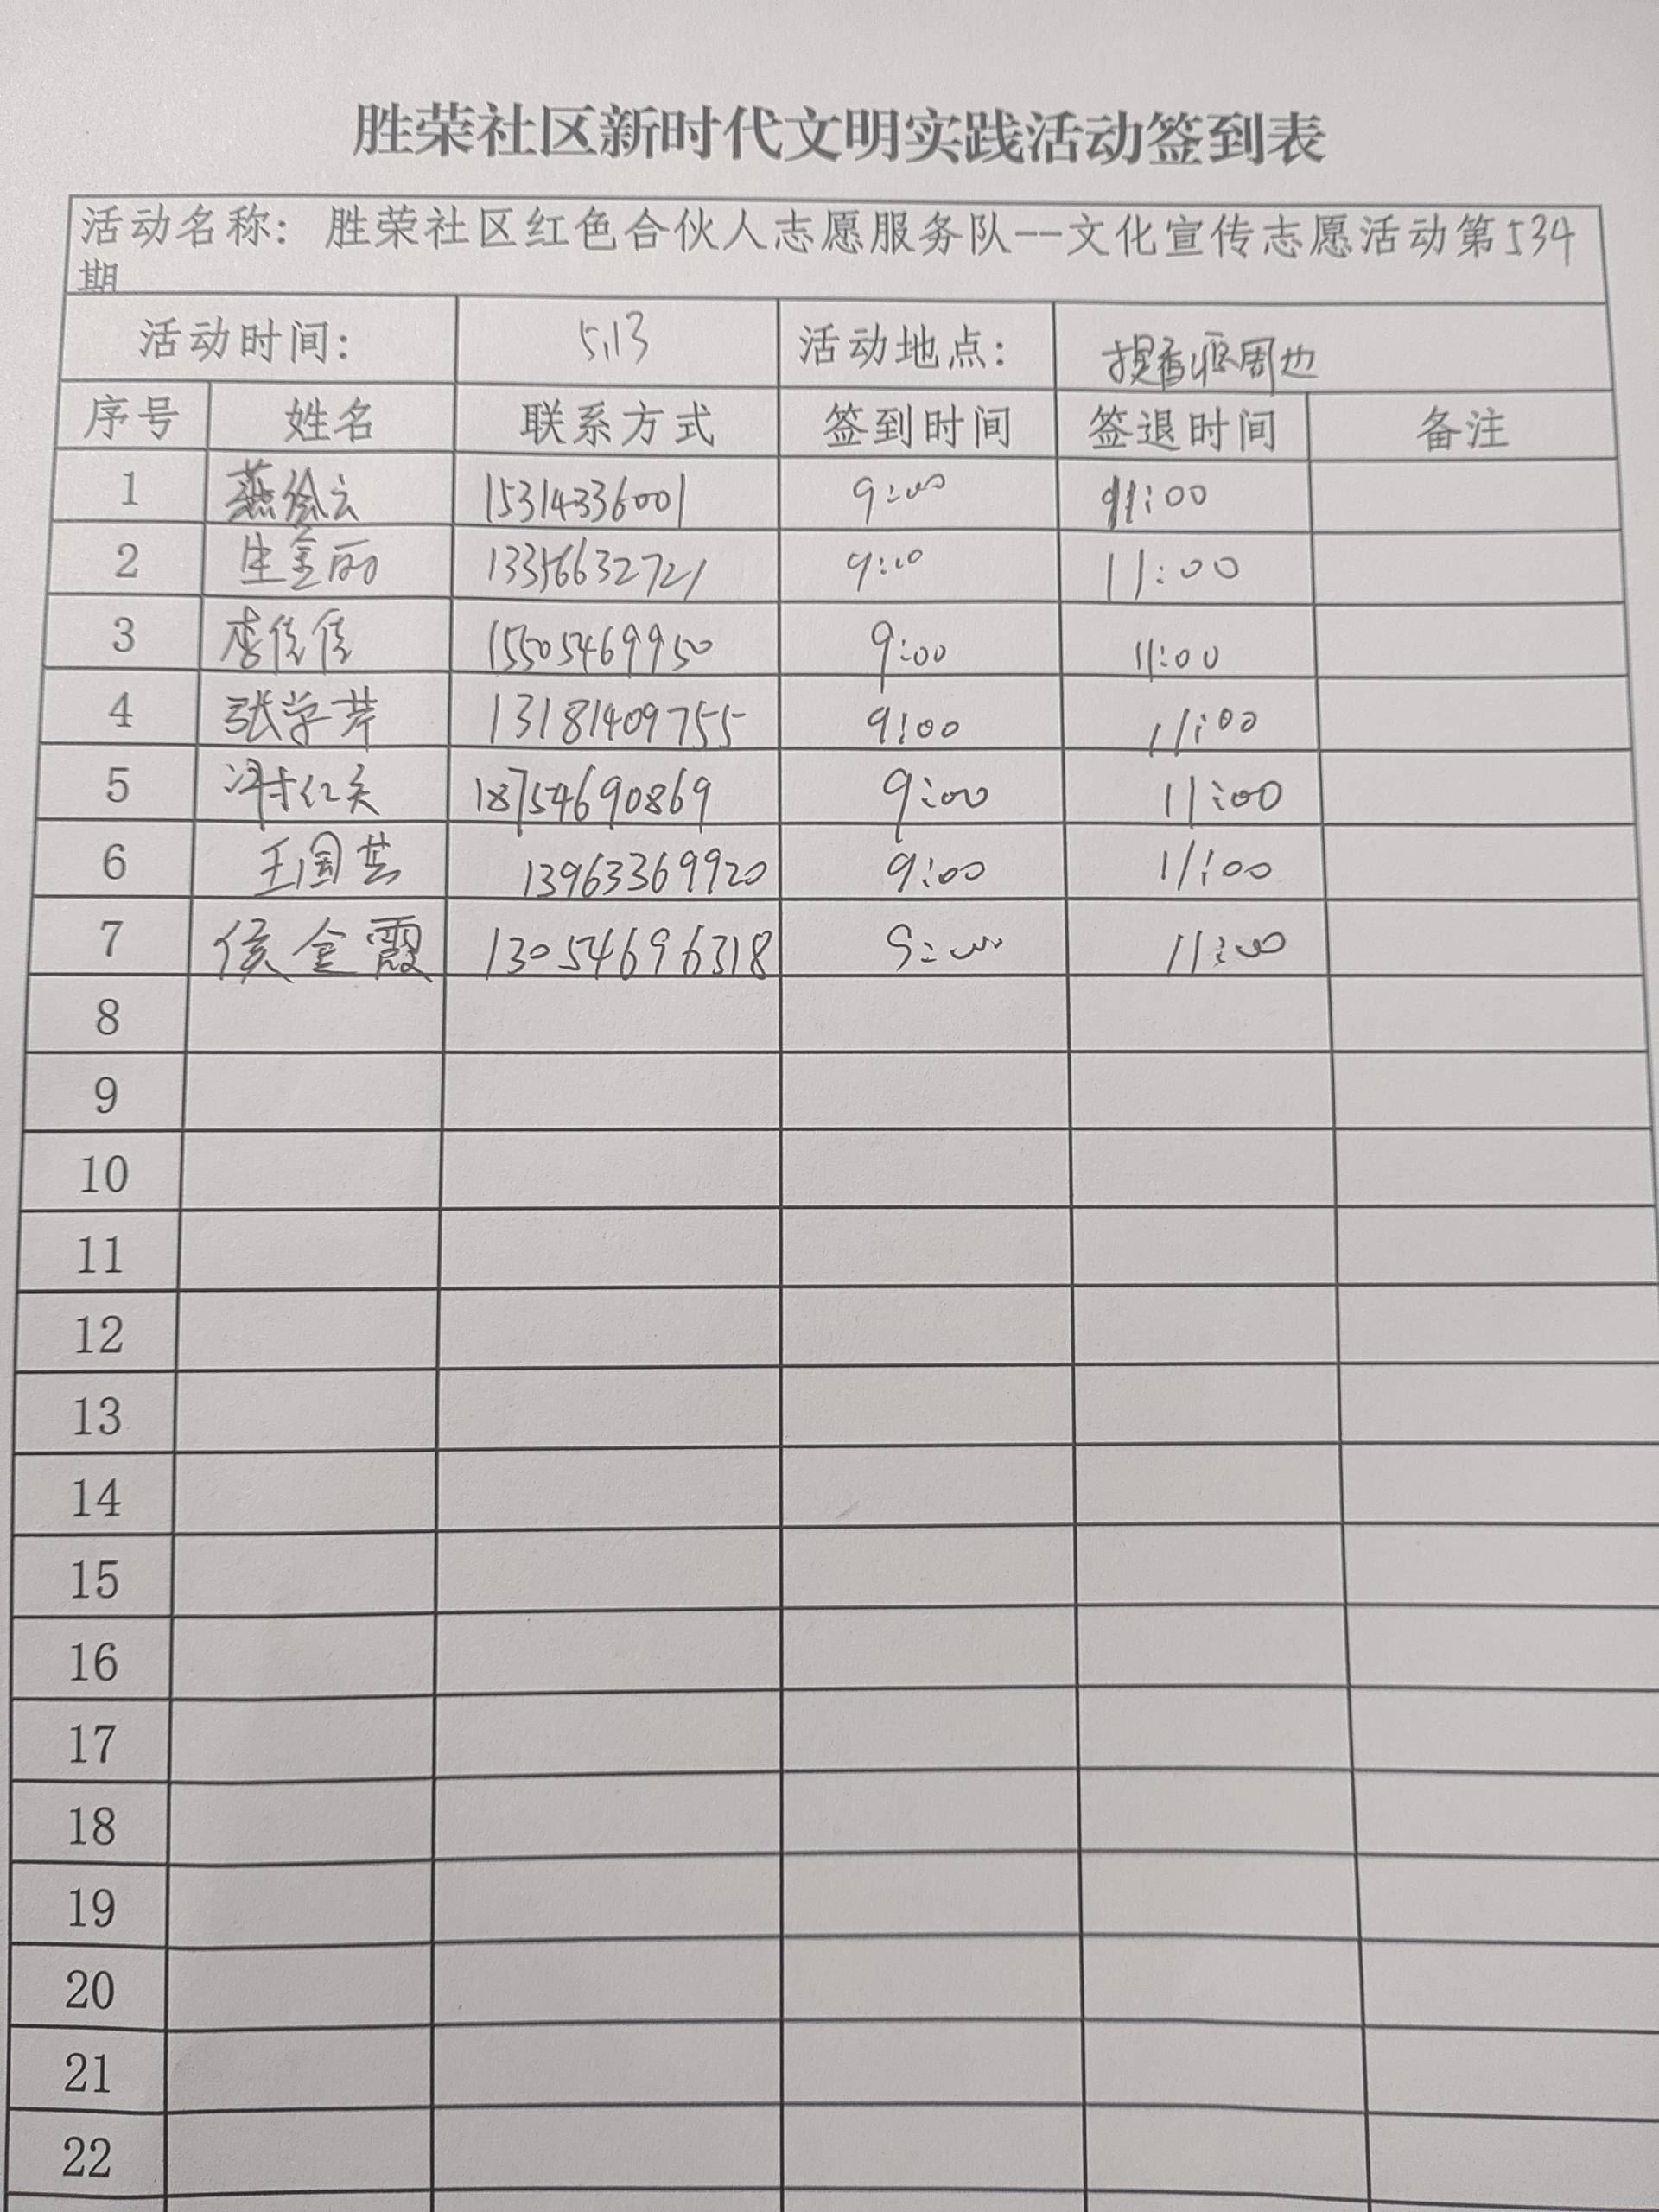 胜荣社区新时代文明实践活动签到表
活动名称：胜荣社区红色合伙人志愿服务队--文化宣传志愿活动第534
期
活动时间： 5.13 活动地点： 提香郡周边
序号 姓名 联系方式 签到时间 签退时间 备注
1 燕云 15314336001 9:00 11:00
2 生金丽 13356632721 9:00 11:00
3 李佳佳 15505469950 9:00 11:00
4 张学芹 13181409755 9:00 11:00
5 18754690869 9:00 11:00
6 王国芸 13963369920 9:00 11:00
7 侯金霞 13054696318 9:00 11:00
8
9
10
11
12
13
14
15
16
17
18
19
20
21
22